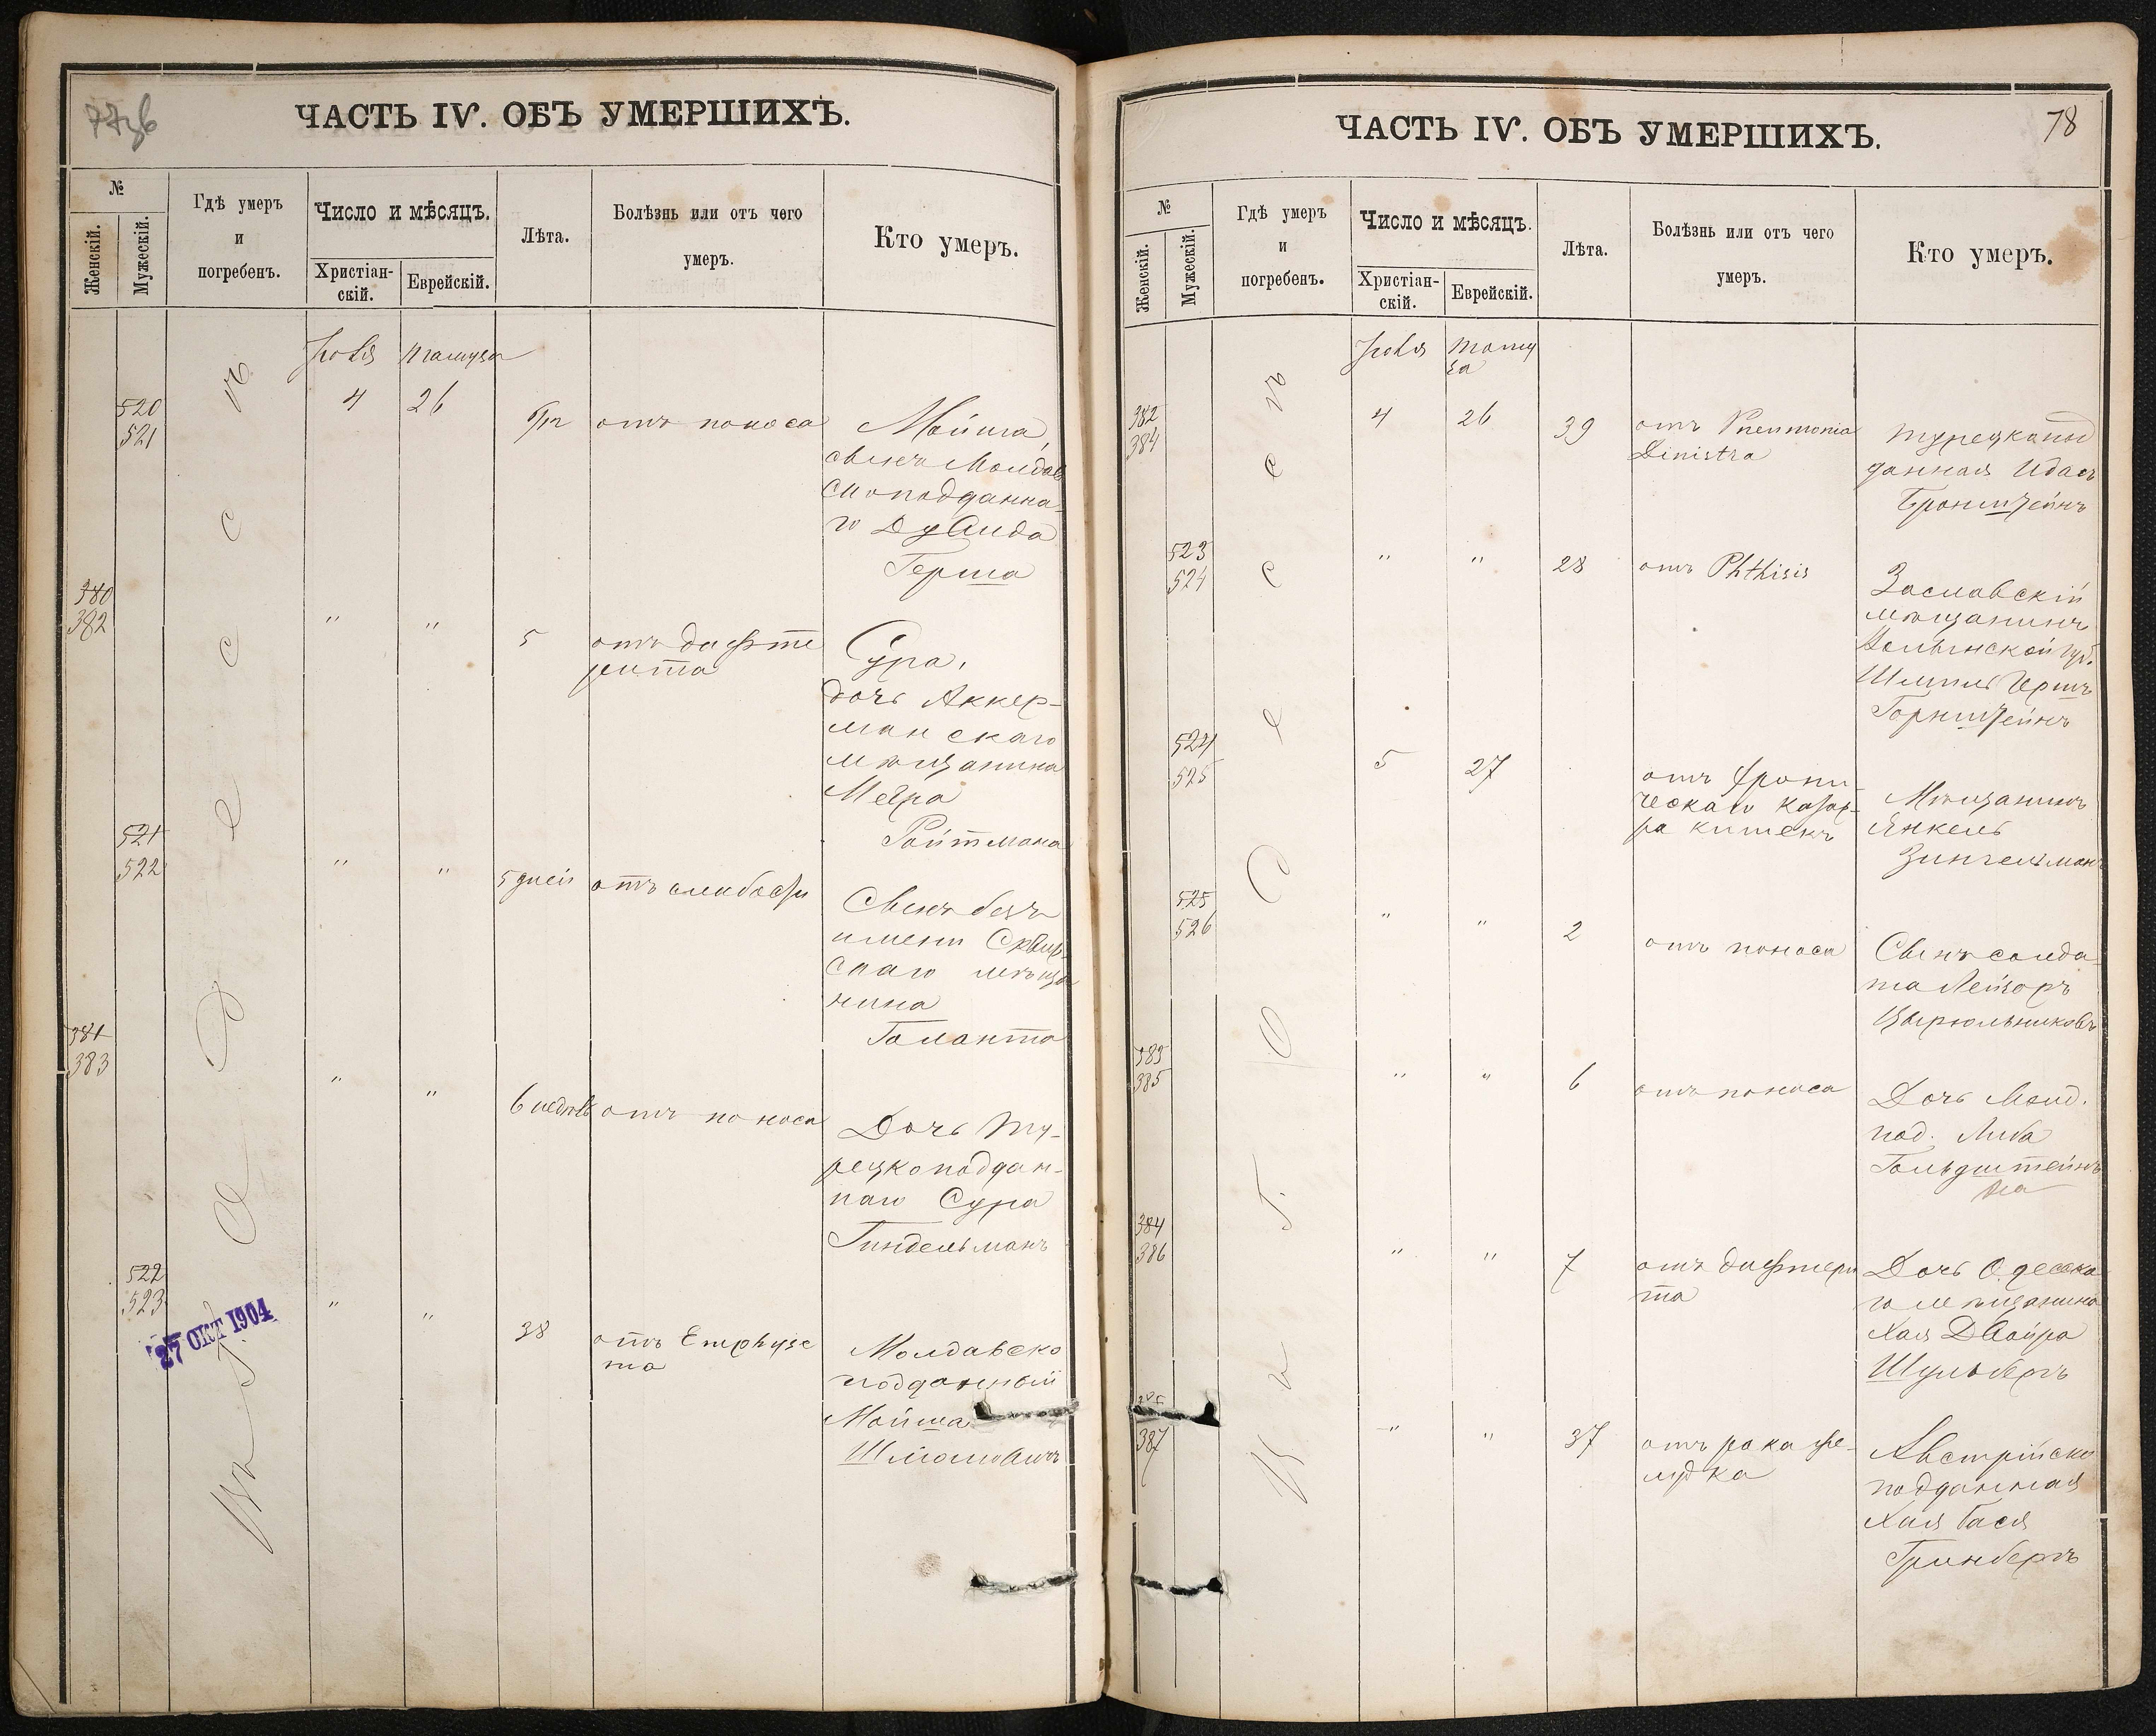 77об
ЧАСТЬ IV. ОБЪ УМЕРШИХЪ.
№
Женскій.
Мужескій.
Гдѣ умеръ
и
погребенъ.
Число и мѣсяцъ.
Христіан-
скій.
Еврейскій.
Лѣта.
Болѣзнь или отъ чего
умеръ.
Кто умеръ.
Въ г. Одессѣ
Іюля
тамуза
520
521
4
26
6/12
отъ поноса
Мойша,
сынъ Молдав
скоподданна-
го Дувида
Герша
380
382
"
"
5
отъ дифте
рита
Сура,
дочь Аккер-
манскаго
мѣщанина
Меера
Ройтмана
521
522
"
"
5 дней
отъ слабости
Сынъ безъ
имени Сквир-
скаго мѣща
нина
Галанта
381
383
"
"
6 недѣль
отъ поноса
Дочь Ту-
рецкоподдан-
наго Сура
Гиндельманъ
522
523
27 ОКТ 1904
"
"
38
отъ Emphyse
ma
Молдавско
подданный
Мойша
Шмоловичъ
78
ЧАСТЬ IV. ОБЪ УМЕРШИХЪ.
№
Женскій.
Мужескій.
Гдѣ умеръ
и
погребенъ.
Число и мѣсяцъ.
Христіан-
скій.
Еврейскій.
Лѣта.
Болѣзнь или отъ чего
умеръ.
Кто умеръ.
Въ г. Одессѣ
Іюля
таму
за
382
384
4
26
39
отъ Pneumonia
Dinistra
турецкопод
данная Идасъ
Бронштейнъ
523
524
"
"
28
отъ Phthisis
Заславскій
мѣщанинъ
Волынской губ.
Шмиль Гершъ
Горнштейнъ
524
525
5
27
отъ хрони-
ческаго катар-
ра кишекъ
Мѣщанинъ
Янкель
Зингельманъ
525
526
"
"
2
отъ поноса
Сынъ солда-
та Лейзоръ
Цырюльниковъ
383
385
"
"
6
отъ поноса
Дочь Молд.
под. Либа
Гольдштейнъ
на
384
386
"
"
7
отъ дифтери
та
Дочь Одесска
го мѣщанина
Хая Двойра
Шульбергъ
385
387
"
"
37
отъ рака же-
лудка
Австрійско
подданная
Хая Бася
Гринбергъ